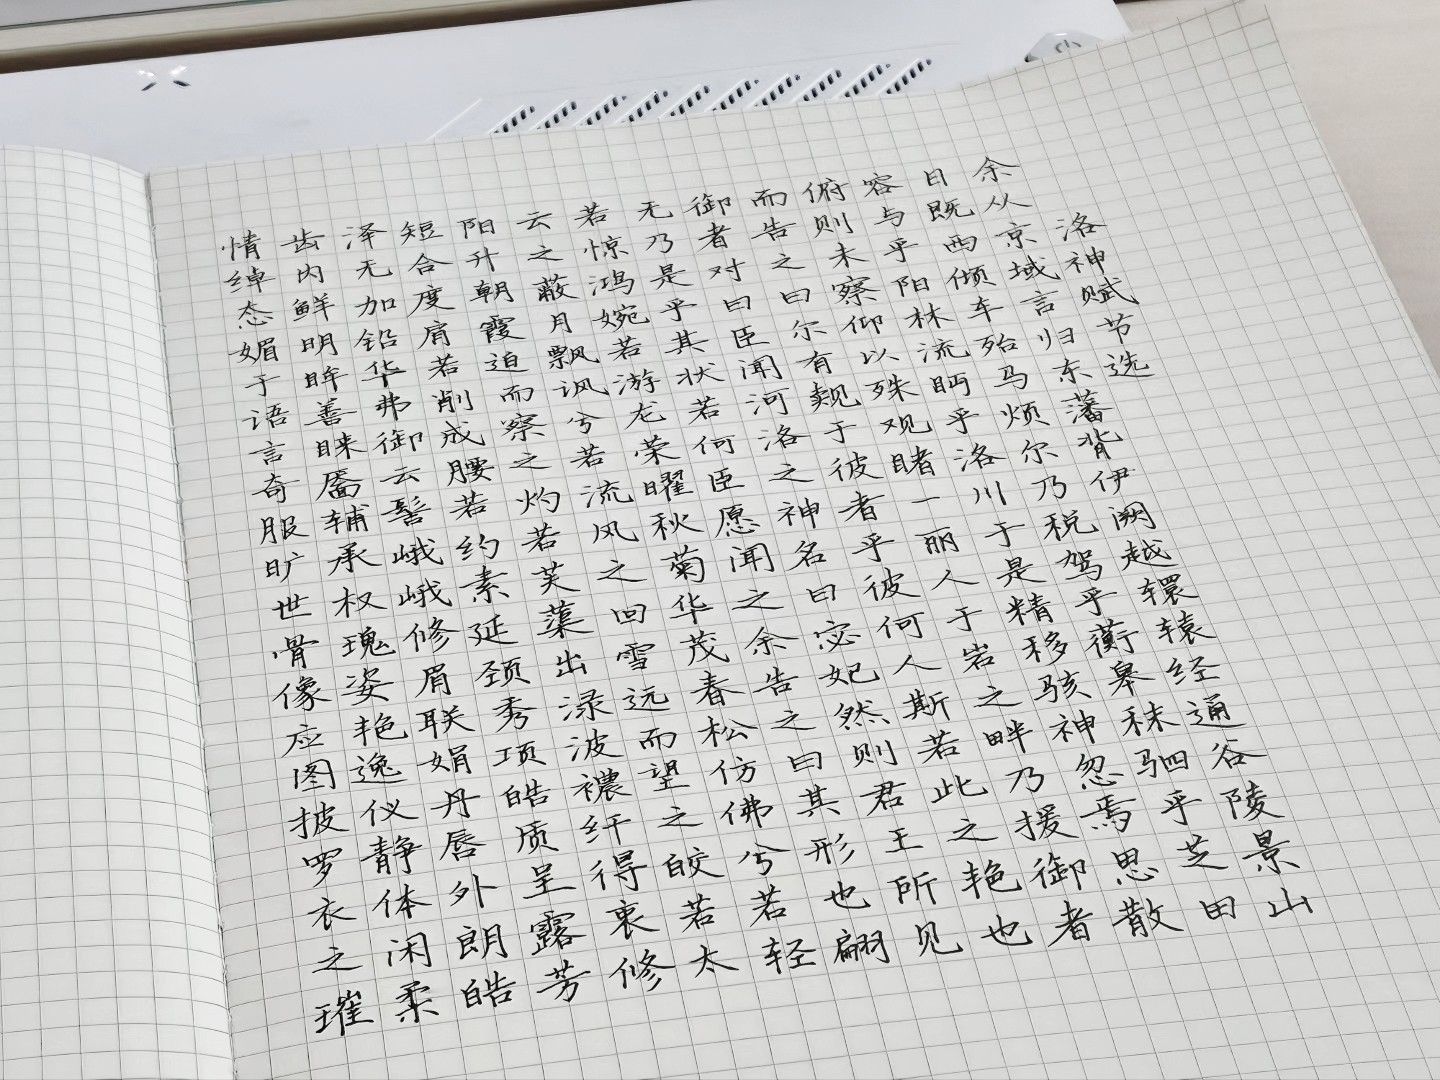 洛神赋节选
余从京域言归东藩背伊阙越轘辕经通谷陵景山
日既西倾车殆马烦尔乃税驾乎蘅皋秣驷乎芝田
容与乎阳林流眄乎洛川于是精移骇神忽焉思散
俯则未察仰以殊观睹一丽人于岩之畔乃援御者
而告之曰尔有觌于彼者乎彼何人斯若此之艳也
御者对曰臣闻河洛之神名曰宓妃然则君王所见
无乃是乎其状若何臣愿闻之余告之曰其形也翩
若惊鸿婉若游龙荣曜秋菊华茂春松仿佛兮若轻
云之蔽月飘讽兮若流风之回雪远而望之皎若太
阳升朝霞迫而察之灼若芙蕖出渌波襛纤得衷修
短合度肩若削成腰若约素延颈秀项皓质呈露芳
泽无加铅华弗御云髻峨峨修眉联娟丹唇外朗皓
齿内鲜明眸善睐靥辅承权瑰姿艳逸仪静体闲柔
情绰态媚于语言奇服旷世骨像应图披罗衣之璀